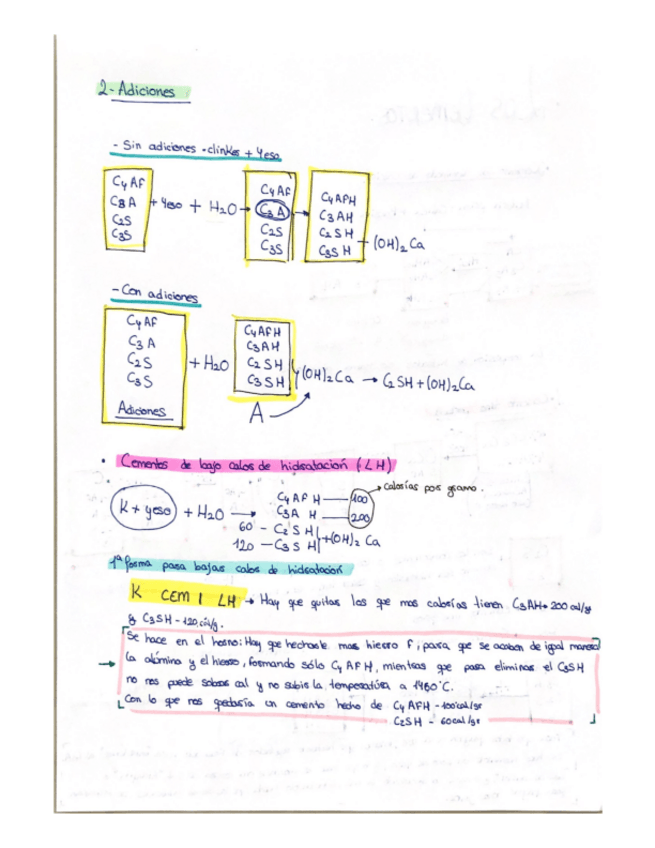 2- Adiciones
- Sin adiciones • clinker + Yeso
C4 AF
C3 A
C2S
C3S
+ Yeso + H2O →
C4 AF
C3 A
C2S
C3S
→
C4AFH
C3 AH
C2 SH
C3S H
+ (OH)2 Ca
- Con adiciones
C4 AF
C3 A
C2 S
C3 S
Adiciones
+ H2O
C4AFH
C3AH
C2 SH
C3 SH
(OH)2Ca → C2SH + (OH)2Ca
A
• Cementos de bajo calor de hidratación (LH)
calorías por gramo.
K + yeso + H2O →
C4AF H — 100
C3A H — 200
60 - C2 S H
120 - C3 S H
+(OH)2 Ca
1ª forma para bajar calor de hidratación
K CEM I LH → Hay que quitar las que mas calorías tienen C3AH→ 200 cal/gr
y C3SH - 120 cal/g.
Se hace en el horno: Hay que hecharle mas hierro F, para que se acaben de igual manera
→ la alúmina y el hierro, formando sólo C4AFH, mientras que para eliminar el C3SH
no nos puede sobrar cal y no subir la temperatúra a 1480°C.
Con lo que nos quedaría un cemento hecho de C4AFH - 100 cal/gr
C2SH - 60cal/gr